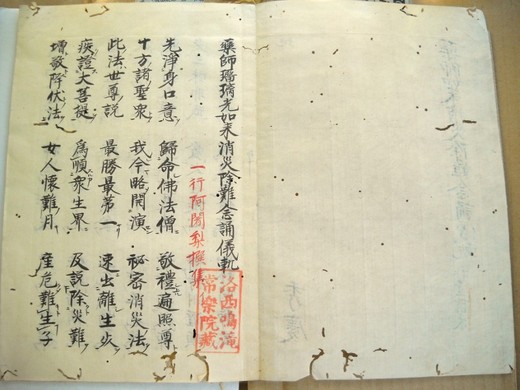 藥師瑠璃光如来消災除難念誦儀軌
一行阿闍梨撰集
洛西鳴滝
常樂院藏
先淨身口意 歸命佛法僧 敬禮遍照尊
十方諸聖衆 我今略開演 秘密消災法
此法世尊説 最勝最第一 速出離生死
疾證大菩提 爲順衆生界 及説除災難
増敬降伏法 女人懷難月 産危難生子